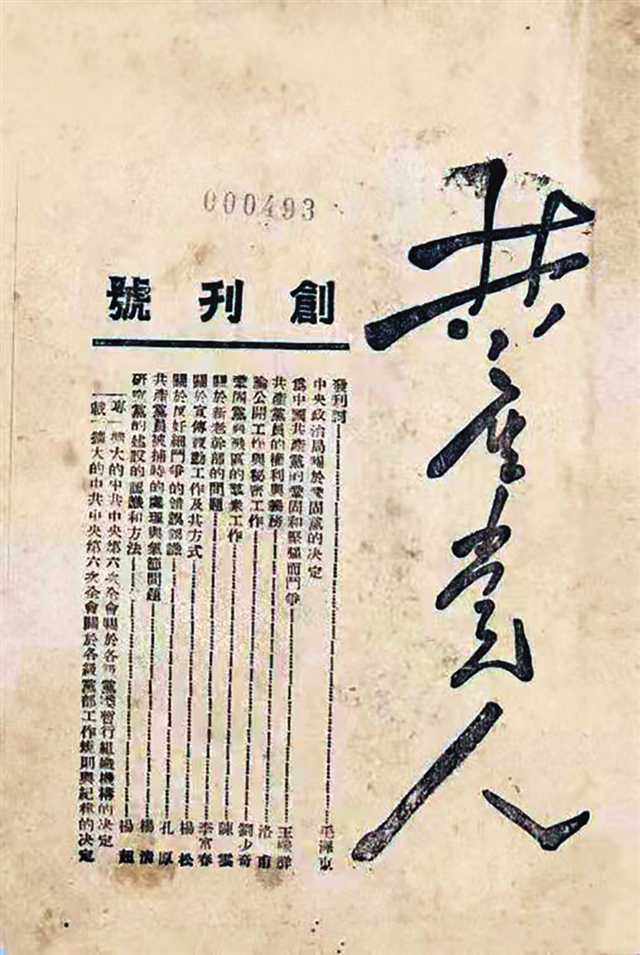 共产党人
000493
創刊號
發刊詞 毛澤東
中央政治局關於鞏固黨的决定
爲中國共產黨的鞏固和堅强而鬥爭 王稼祥
共產黨員的權利與義務 洛甫
論公開工作與秘密工作 劉少奇
鞏固黨與戰區的羣衆工作 陳雲
關於新老幹部的問題 李富春
關於宣傳鼓動工作及其方式 楊松
關於反奸細鬥爭的錯誤認識 孔原
共產黨員被捕時的處理與氣節問題 楊清
研究黨的建設的認識和方法 楊超
專載
擴大的中共中央第六次全會關於各級黨委暫行組織機構的决定
擴大的中共中央第六次全會關於各級黨部工作規則與紀律的决定